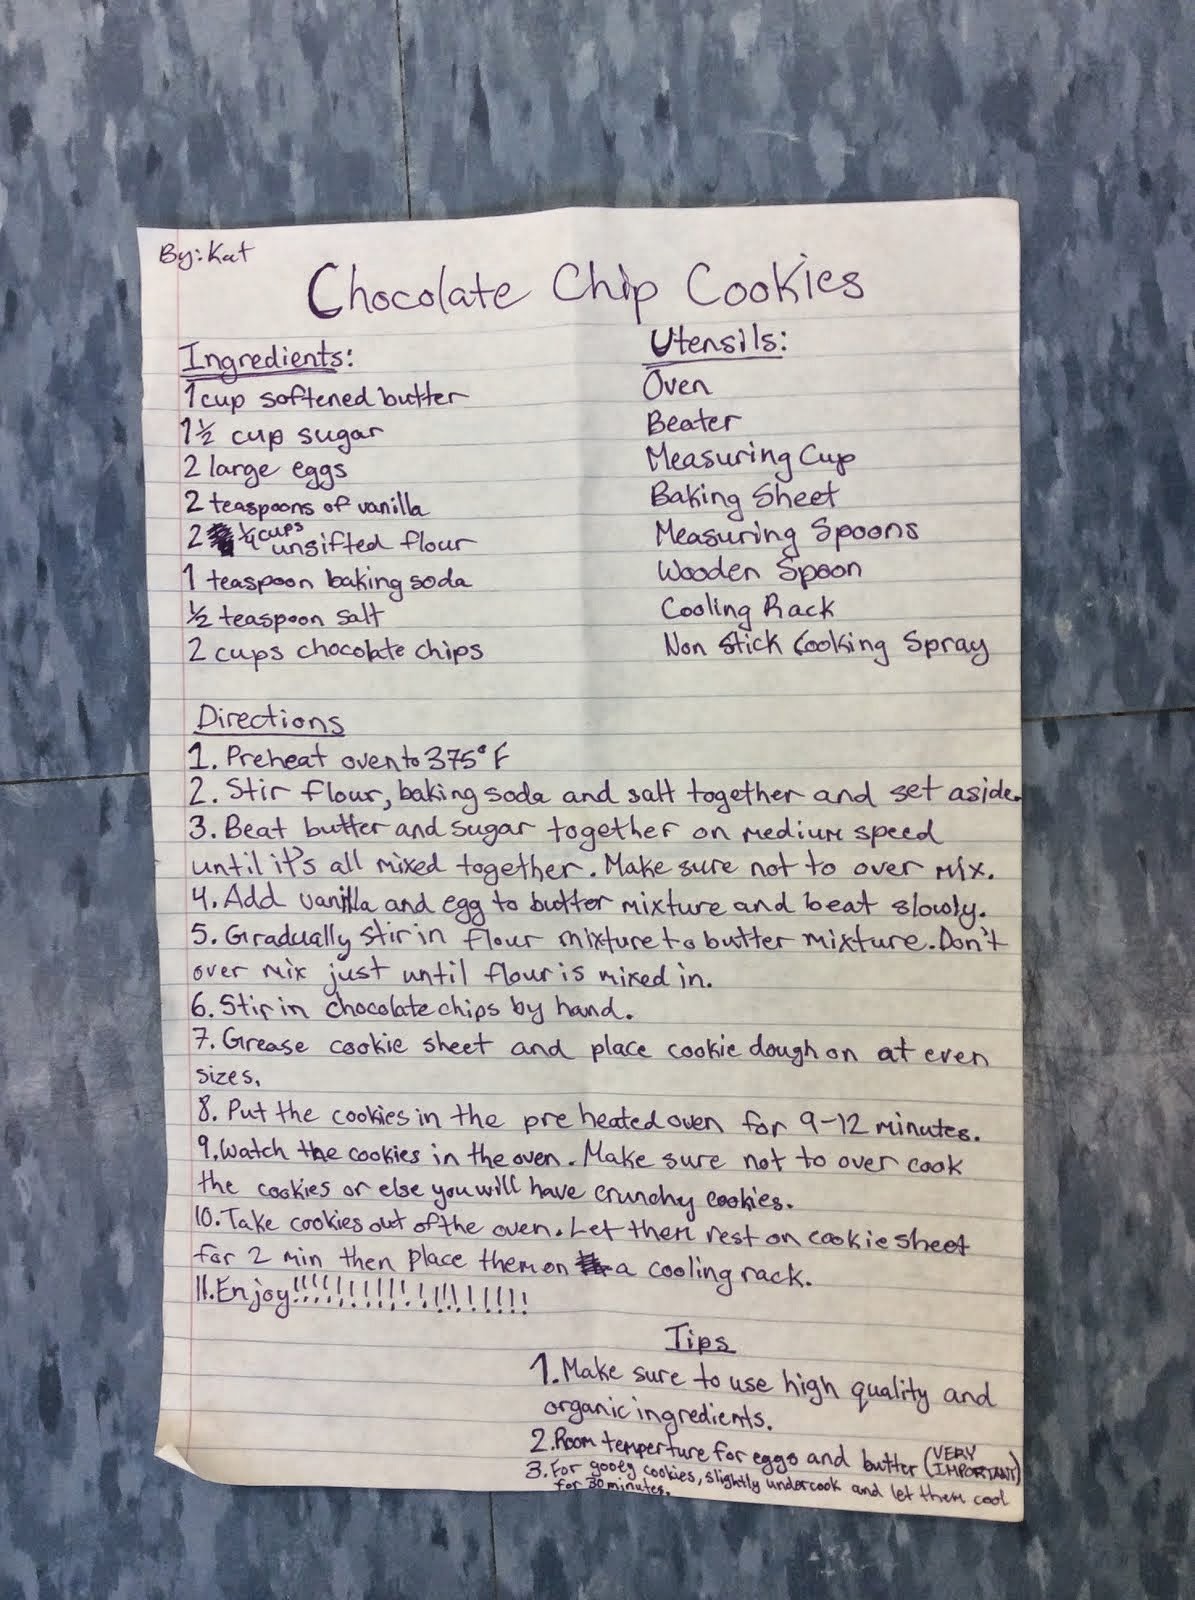 By: Kat
Chocolate Chip Cookies
Ingredients:
1 cup softened butter
1 ½ cup sugar
2 large eggs
2 teaspoons of vanilla
2 ¼ cups unsifted flour
1 teaspoon baking soda
½ teaspoon salt
2 cups chocolate chips
Utensils:
Oven
Beater
Measuring Cup
Baking Sheet
Measuring Spoons
Wooden Spoon
Cooling Rack
Non Stick Cooking Spray
Directions
1. Preheat oven to 375° F
2. Stir flour, baking soda and salt together and set aside.
3. Beat butter and sugar together on medium speed
until it's all mixed together. Make sure not to over mix.
4. Add vanilla and egg to butter mixture and beat slowly.
5. Gradually stir in flour mixture to butter mixture. Don't
over mix just until flour is mixed in.
6. Stir in chocolate chips by hand.
7. Grease cookie sheet and place cookie dough on at even
sizes.
8. Put the cookies in the pre heated oven for 9-12 minutes.
9. Watch the cookies in the oven. Make sure not to over cook
the cookies or else you will have crunchy cookies.
10. Take cookies out of the oven. Let them rest on cookie sheet
for 2 min then place them on a cooling rack.
11. Enjoy!!!!!!!!!!!!!!!!!!!!
Tips
1. Make sure to use high quality and
organic ingredients.
2. Room temperture for eggs and butter (VERY
IMPORTANT)
3. For gooey cookies, slightly undercook and let them cool
for 30 minutes.